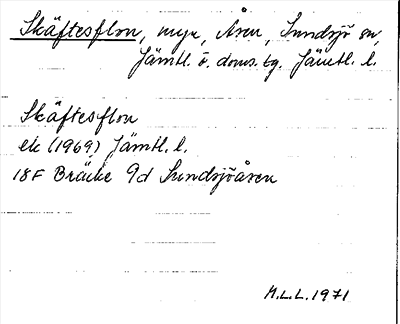 Skäftesflon, myr, Åsen, Sundsjö sn,
Jämtl. ö. doms. tg. Jämtl. l.
Skäftesflon
ek (1969) Jämtl. l.
18F Bräcke 9d Sundsjöåsen
M.L.L. 1971